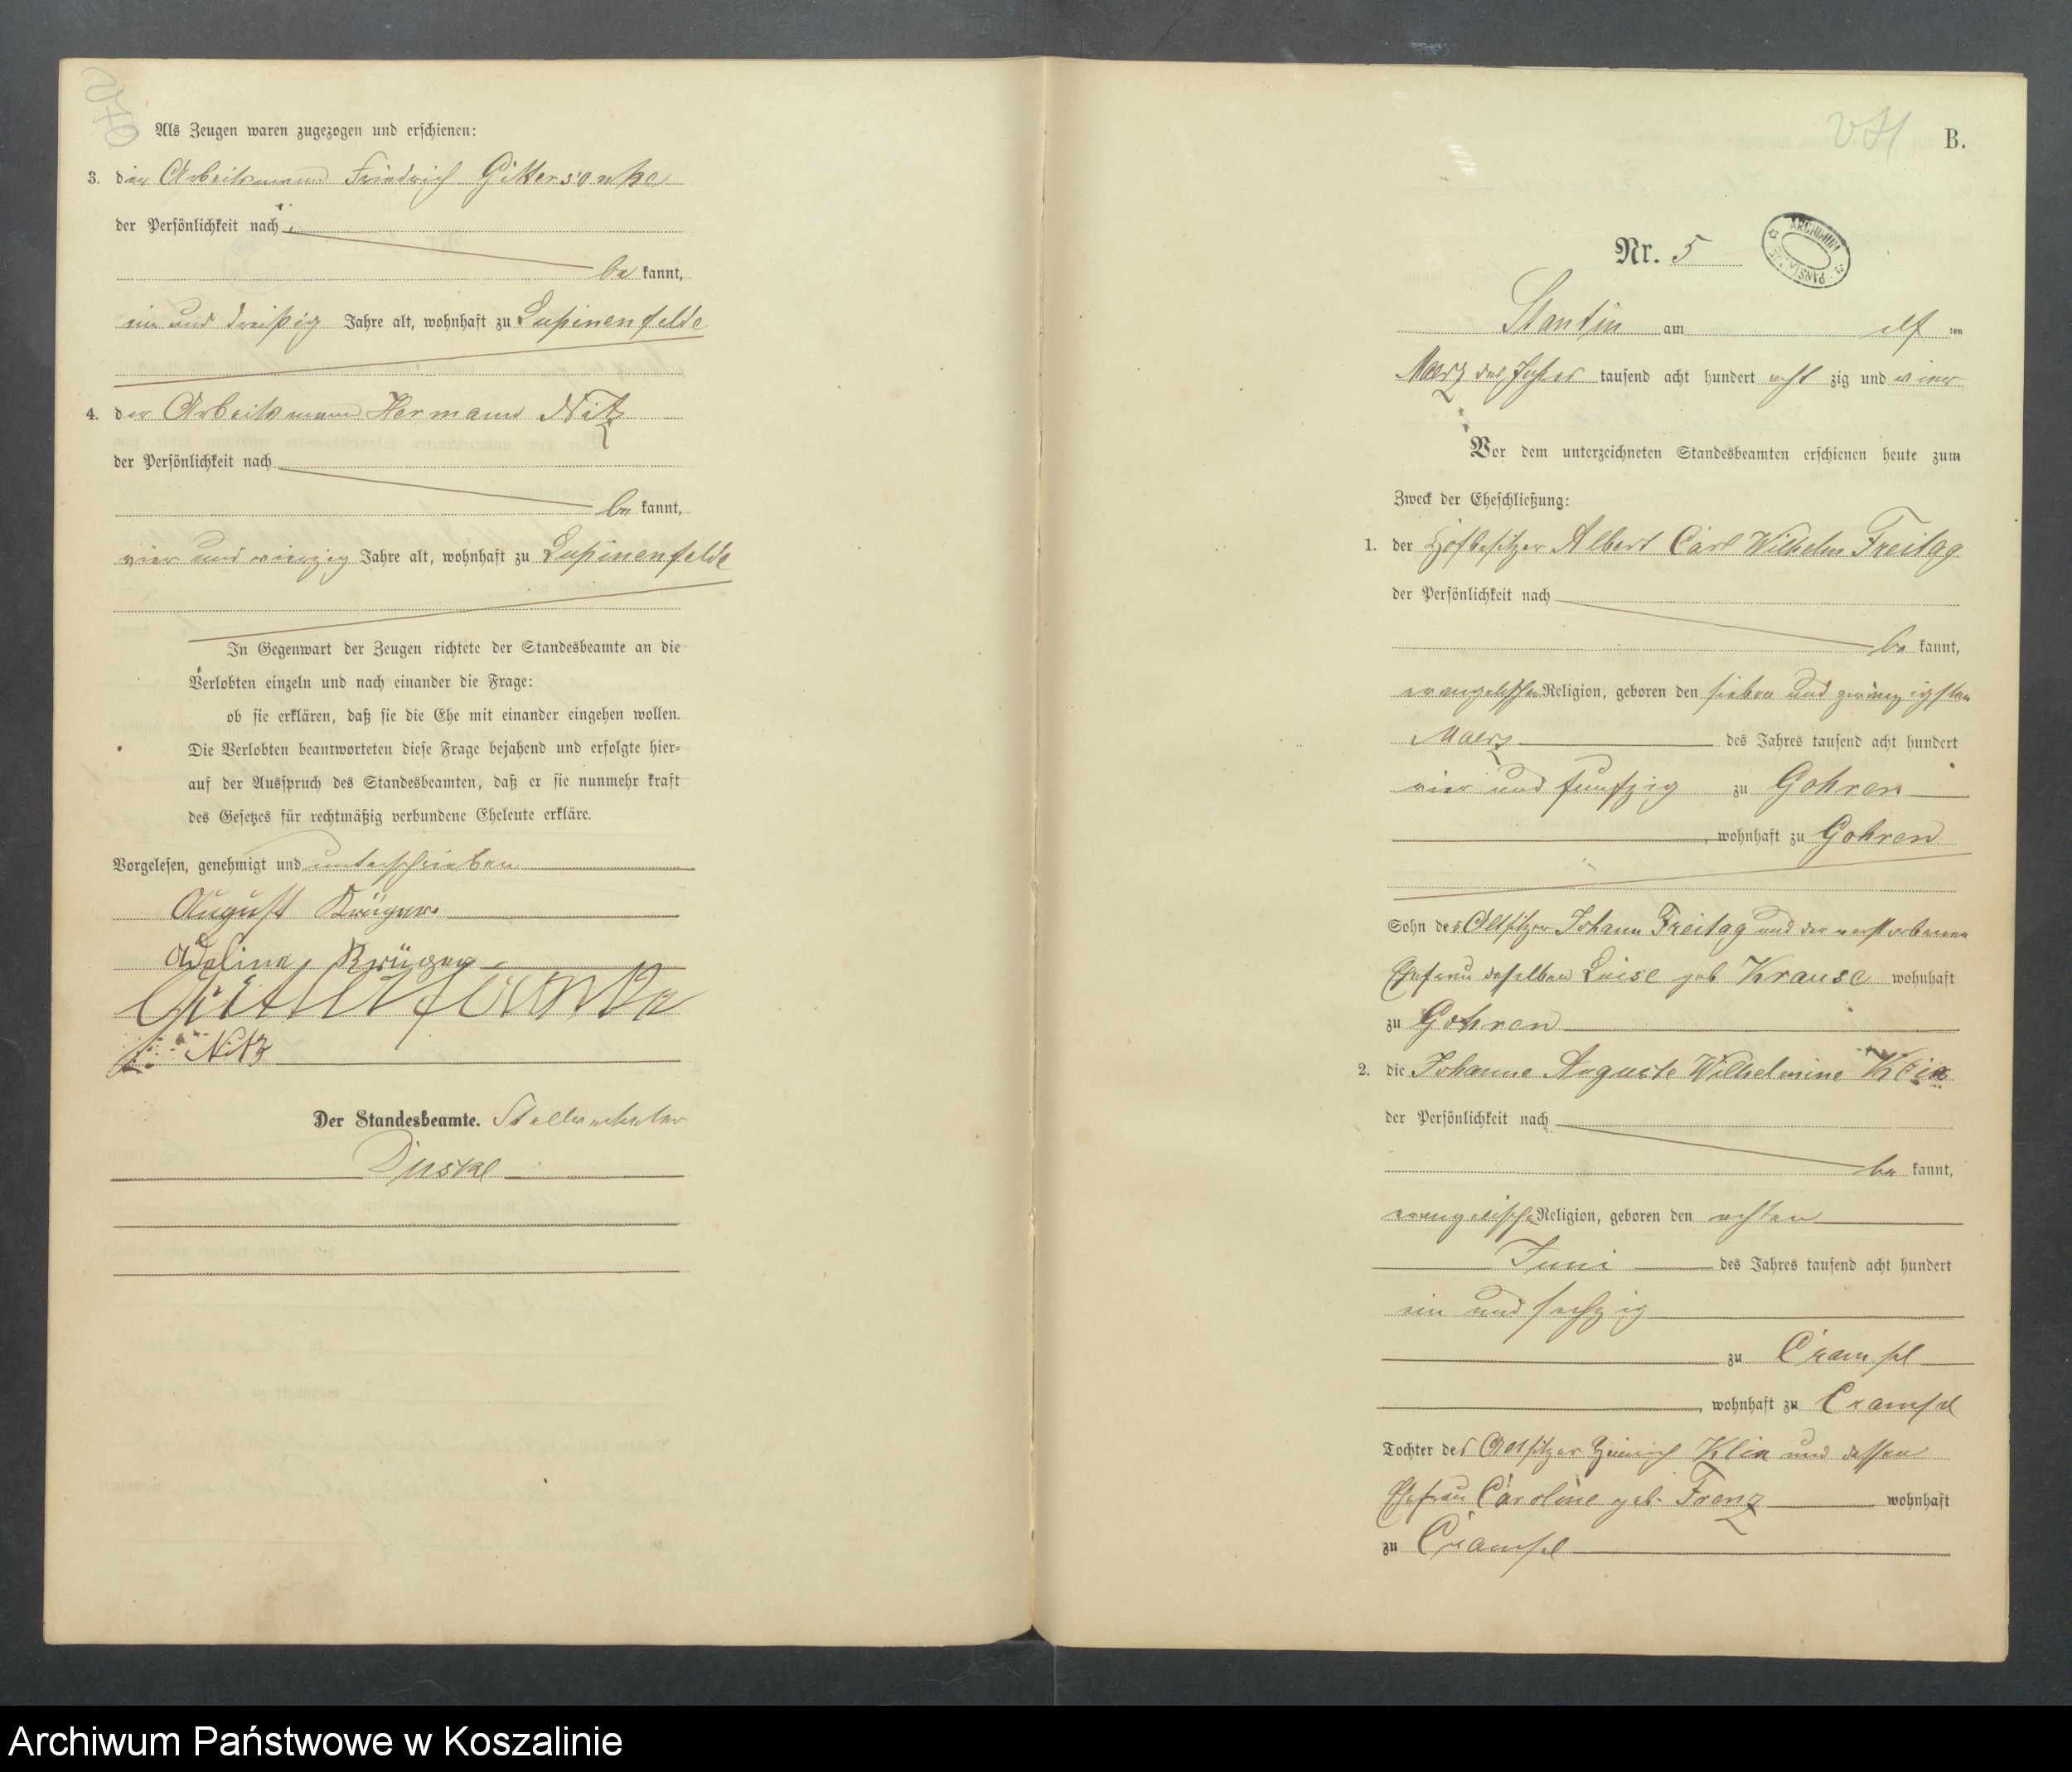 Als Zeugen waren zugezogen und erschienen:
3. der Arbeitsmann Friedrich Gittersonke
der Persönlichkeit nach
be kannt,
ein und dreißig Jahre alt, wohnhaft zu Lupinenfelde
4. der Arbeitsmann Hermann Nitz
der Persönlichkeit nach
be kannt,
vier und vierzig Jahre alt, wohnhaft zu Lupinenfelde
In Gegenwart der Zeugen richtete der Standesbeamte an die
Verlobten einzeln und nach einander die Frage:
ob sie erklären, daß sie die Ehe mit einander eingehen wollen.
Die Verlobten beantworteten diese Frage bejahend und erfolgte hier-
auf der Ausspruch des Standesbeamten, daß er sie nunmehr kraft
des Gesetzes für rechtmäßig verbundene Eheleute erkläre.
Vorgelesen, genehmigt und unterschrieben
August Krüger
Krüger
Nitz
Der Standesbeamte. Stellvertreter
B.
Nr. 5
ARCHIWUM
Stantin am elf ten
Maerz des Jahres tausend acht hundert acht zig und vier
Vor dem unterzeichneten Standesbeamten erschienen heute zum
Zweck der Eheschließung:
1. der Hofbesitzer Albert Carl Wilhelm Freitag
der Persönlichkeit nach
be kannt,
evangelischen Religion, geboren den sieben und zwanzigsten
Maerz des Jahres tausend acht hundert
vier und funfzig zu Gohren
, wohnhaft zu Gohren
Sohn des Altsitzer Johann Freitag und der verstorbenen
Ehefrau desselben Luise geb Krause wohnhaft
zu Gohren
2. die Johanne Auguste Wilhelmine Klix
der Persönlichkeit nach
be kannt,
evangelischen Religion, geboren den achten
Juni des Jahres tausend acht hundert
ein und sechzig
zu Crampe
, wohnhaft zu Crampe
Tochter des Altsitzer Heinrich Klix und dessen
Ehefrau Caroline geb. Frenz wohnhaft
zu Crampe
Archiwum Państwowe w Koszalinie